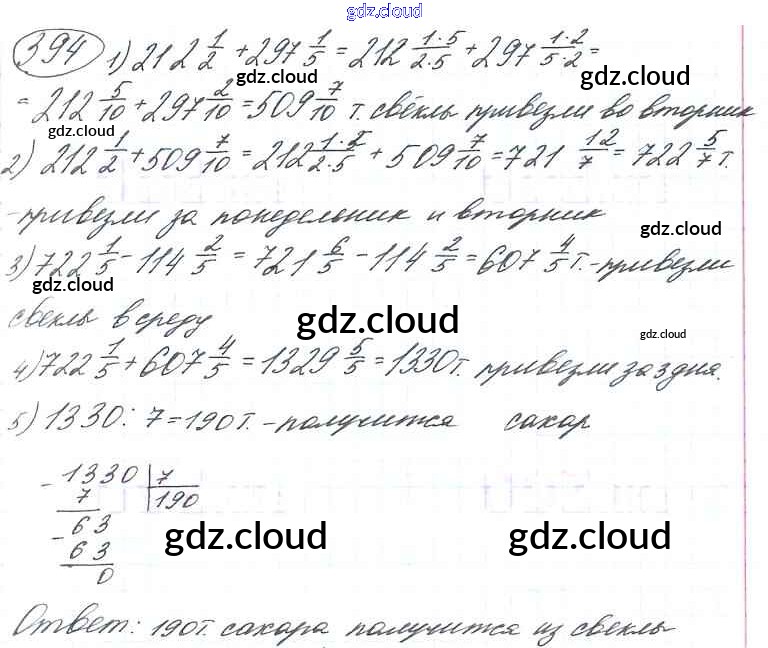 gdz.cloud
394 1) 212 1/2 + 297 1/5 = 212 1·5/2·5 + 297 1·2/5·2 =
gdz.cloud gdz.cloud
= 212 5/10 + 297 2/10 = 509 7/10 т. свёклы привезли во вторник
gdz.cloud
2) 212 1/2 + 509 7/10 = 212 1·5/2·5 + 509 7/10 = 721 12/7 = 722 5/7 т.
- привезли за понедельник и вторник
gdz.cloud
3) 722 1/5 - 114 2/5 = 721 6/5 - 114 2/5 = 607 4/5 т. - привезли
gdz.cloud
свеклы в среду
gdz.cloud gdz.cloud
4) 722 1/5 + 607 4/5 = 1329 5/5 = 1330 т. привезли за 3 дня.
5) 1330 : 7 = 190 т. - получится сахар
- 1330 | 7
7 | 190
- 63
63
0
gdz.cloud gdz.cloud
Ответ: 190 т. сахара получится из свеклы